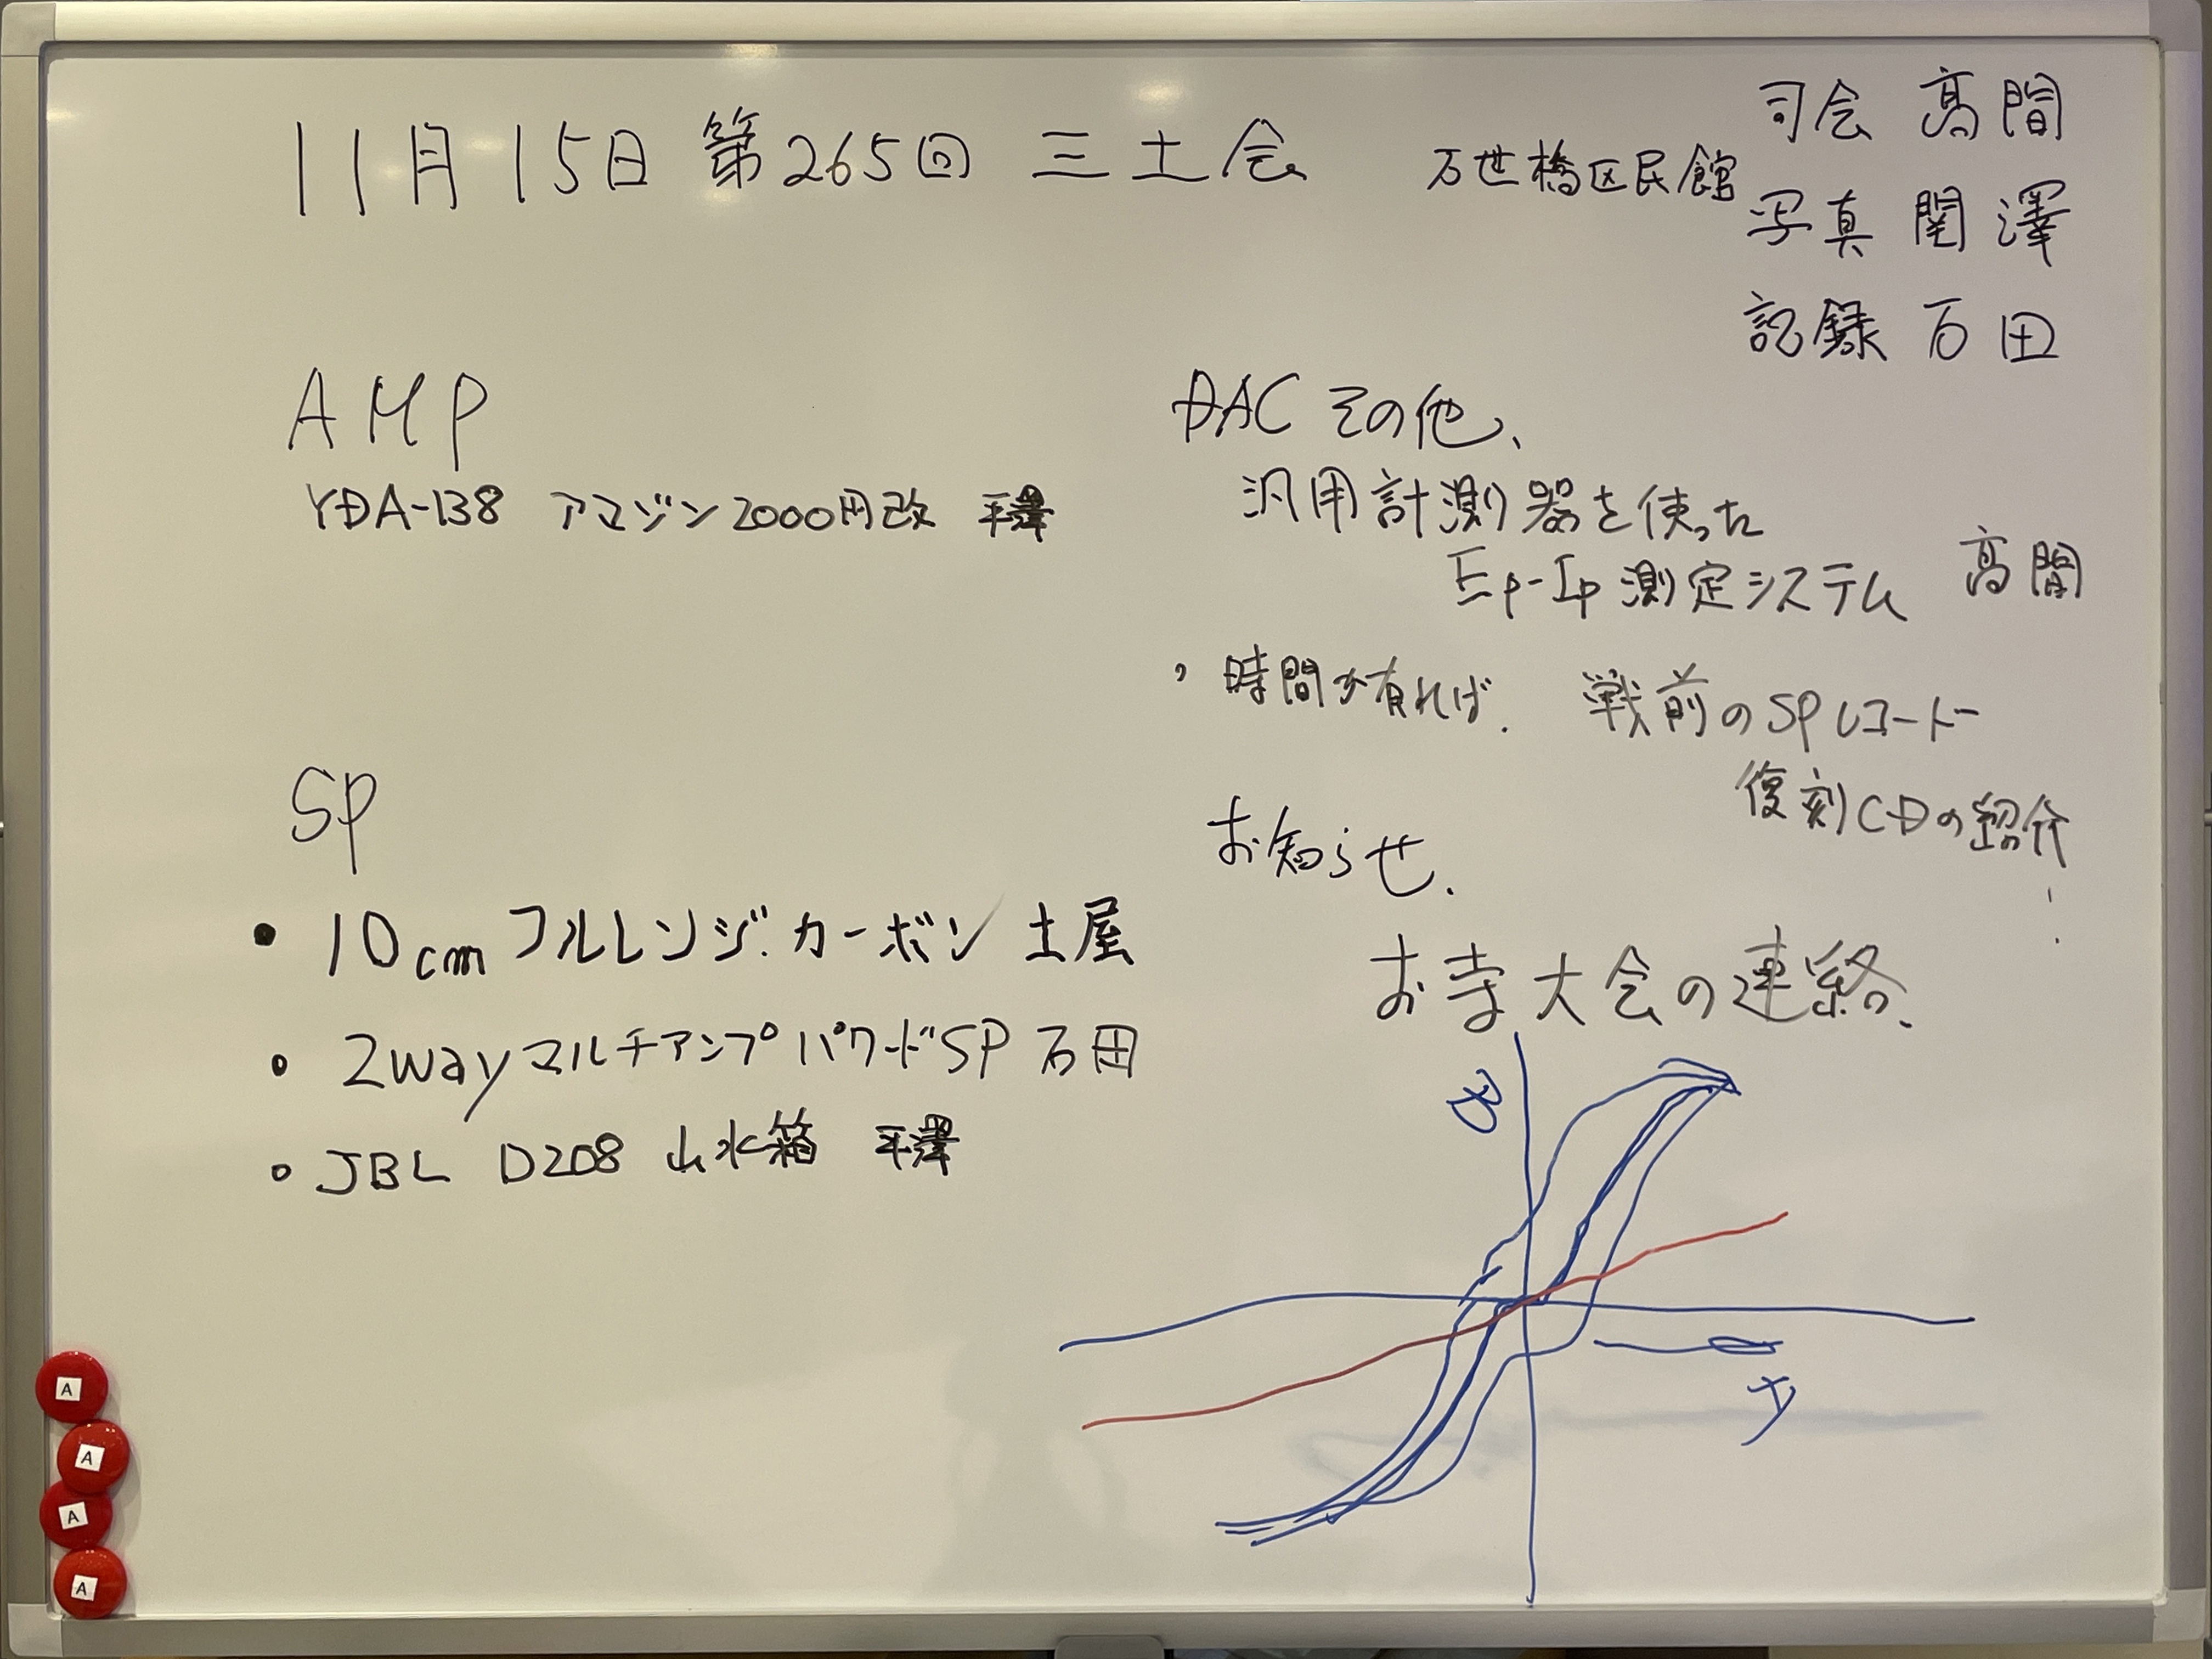 11月15日 第265回 三土会 万世橋区民館
司会 高間
写真 関澤
記録 万田
AMP
YDA-138 アマゾン2000円改 平澤
SP
• 10cmフルレンジ.カーボン 土屋
• 2wayマルチアンプパワードSP 万田
• JBL D208 山水箱 平澤
DACその他、
汎用計測器を使った
Ep-Ip測定システム 高間
, 時間が有れば. 戦前のSPレコード
復刻CDの紹介
お知らせ.
お寺大会の連絡、
B
A
A
A
A